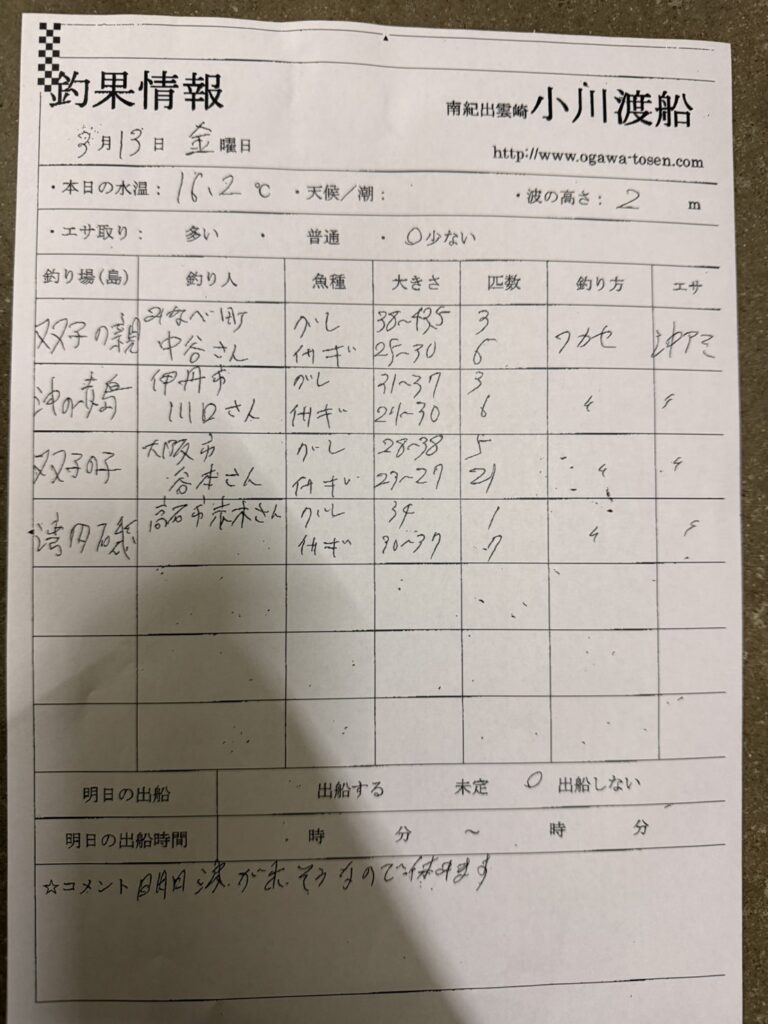 釣果情報
南紀出雲崎 小川渡船
3月13日 金曜日
http://www.ogawa-tosen.com
・本日の水温： 16.2 ℃ ・天候／潮： ・波の高さ： 2 m
・エサ取り： 多い ・ 普通 ・ ○少ない
釣り場(島) 釣り人 魚種 大きさ 匹数 釣り方 エサ
双子の親 みなべ町 グレ 38~43.5 3
中谷さん イサギ 25~30 6 フカセ 沖アミ
沖の青島 伊丹市 グレ 31~37 3
川口さん イサギ 24~30 6 〃 〃
双子の子 大阪市 グレ 28~38 5
谷本さん イサギ 23~27 21 〃 〃
湾内磯 高石市赤木さん グレ 34 1
イサギ 30~37 7 〃 〃
明日の出船 出船する 未定 ○ 出船しない
明日の出船時間 時 分 ～ 時 分
☆コメント 明日 波が来そうなので休みます